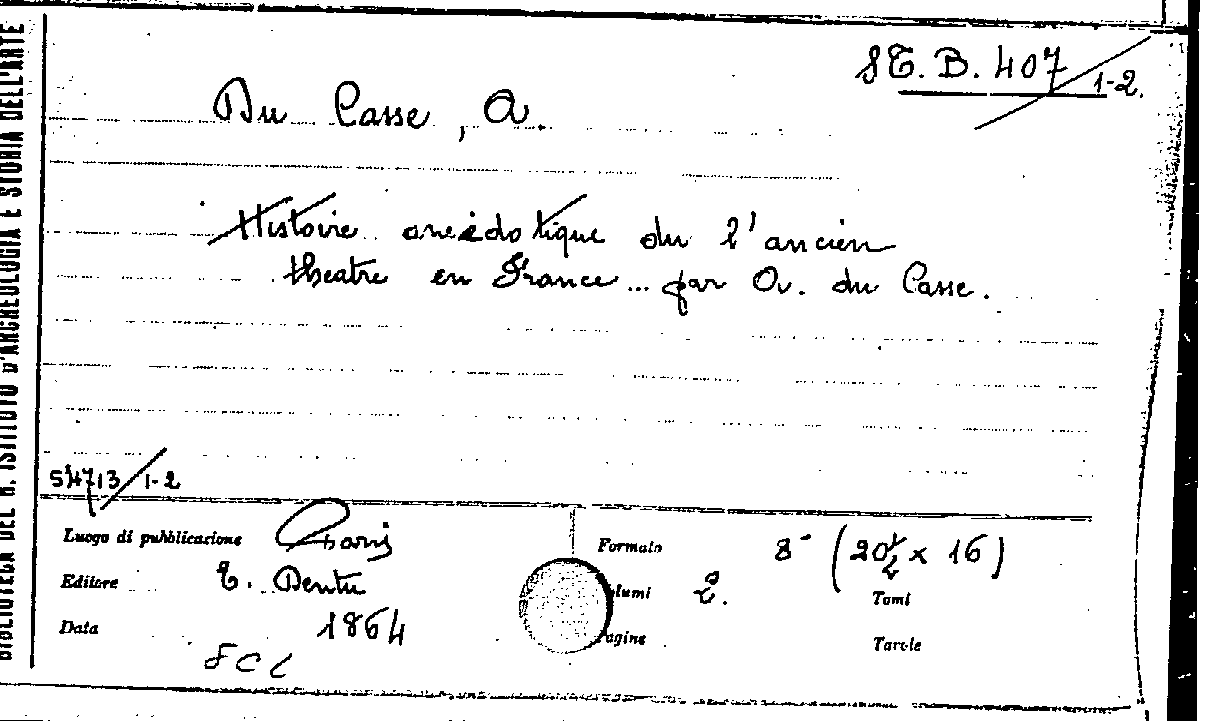 BIBLIOTECA DEL R. ISTITUTO D'ARCHEOLOGIA E STORIA DELL'ARTE
ST. B. 407/1-2.
Du Casse, A.
Histoire anecdotique du l'ancien
theatre en France... par A. du Casse.
54713/1-2
Luogo di pubblicazione Paris
Formato 8° (20½ x 16)
Editore E. Dentu
lumi 2.
Tomi
Data 1864
agine
Tavole